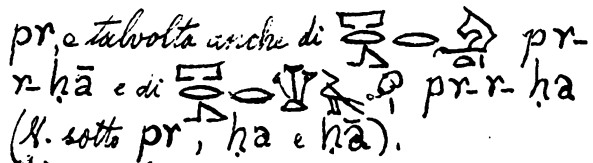 pr, e talvolta anche di 𓉐𓂋𓂻𓂋 pr-
r-ḥā e di 𓉐𓂋𓂻𓂋 pr-r-ḥa
(V. sotto pr, ḥa e ḥā).